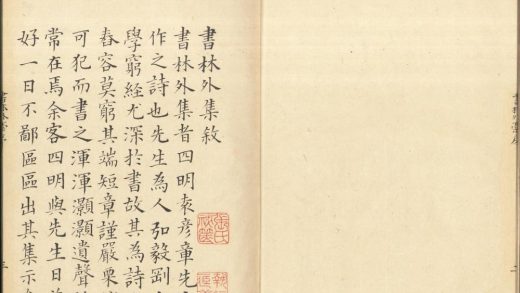 書林外集敘
書林外集者四明袁彦章先
作之詩也先生為人弘毅剛
學窮經尤深於書故其為詩
舂容莫窮其端短章謹嚴眾
可犯而書之渾渾灝灝遺聲
常在焉余客四明與先生日
好一日不鄙區區出其集示